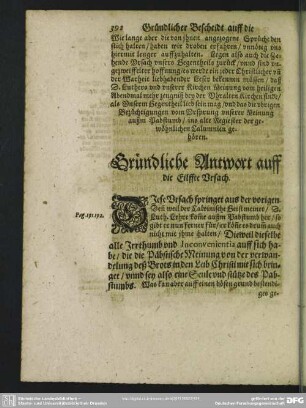 302 Gründlicher Bescheidt auff die
Wie lange aber die von ihnen angezogene Sprüche den
stich halten / haben wir droben erfahren / unnötig uns
hiemit lenger auffzuhalten. Gegen also auch die Ze-
hende Ursach unsers Gegentheils zurück / und sind
der Warheit liebhabender Leser bekennen müssen / daß
D. Luthern und unserer Kirchen Meinung vom heiligen
Abendmal mehr zeugniß bey der Alten Kirchen findt /
als Unserm Gegentheil lieb sein mag / und das die übrigen
Bezüchtigungen vom Ursprung unserer Meinung
außm Pabstumb / ins alte Register der ge-
wöhnlichen Calumnien ge-
hören.
Gründliche Antwort auff
die Eilffte Ursach.
Pag. 191. 192.
DIese Ursach springet aus der vorigen.
Den weil der Calvinische Geist meinet / D.
Luth. Lehre kome außm Pabstumb her / so
gibt er nun ferner für / er köñe es drum auch
nicht mit ihme halten / Dieweil dieselbe
alle Irrthumb und Inconvenientia auff sich ha-
be / die die Päbstische Meinung von der verwan-
delung deß Brots in den Leib Christi mit sich brin-
get / und sey also eine Seule und stütze des Pab-
stumbs. Was kan aber auff einen bösen grund bestendi-
ges ge-